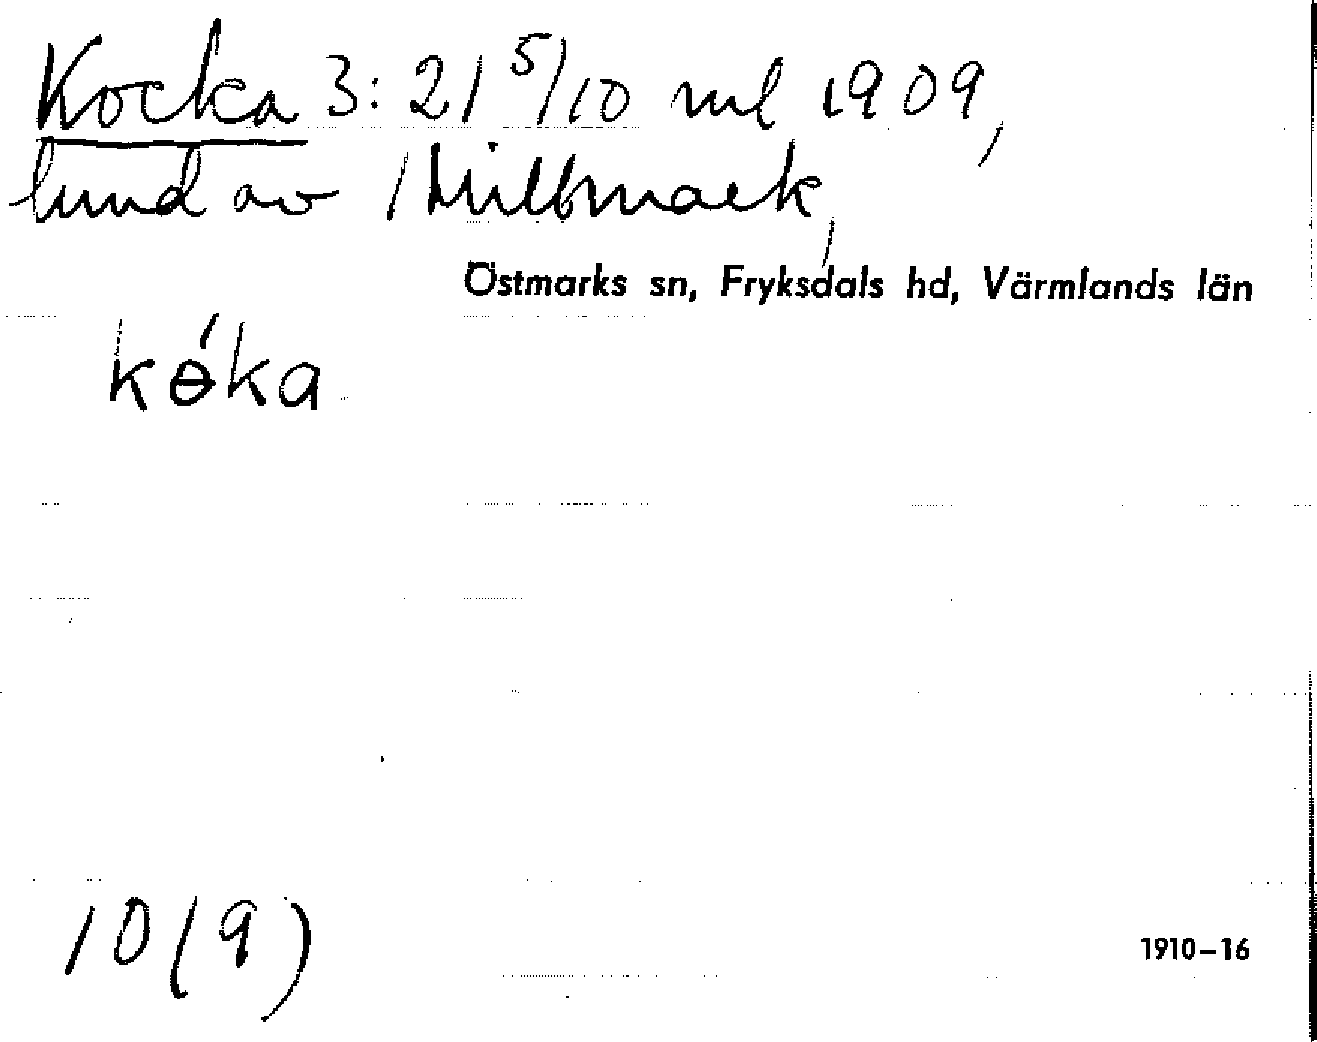 Kocka 3:21 5/10 ml 1909,
lund av 1 Millmark,
Östmarks sn, Fryksdals hd, Värmlands län
kө́ka
10(9)
1910–16